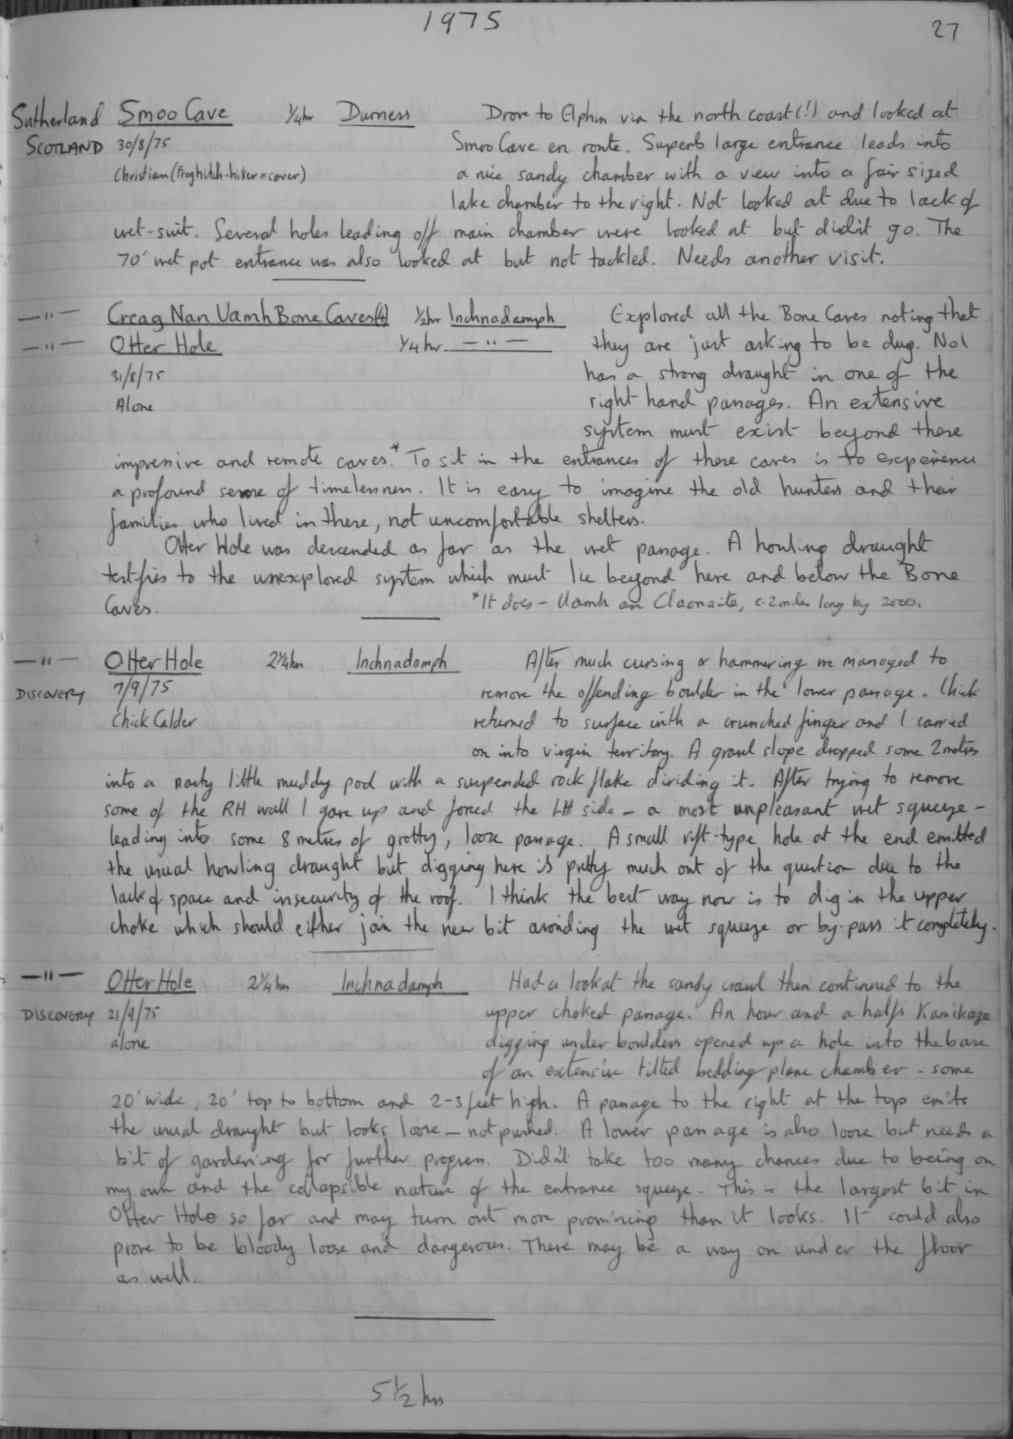 1975
27
Sutherland Smoo Cave ¼hr Durness Drove to Elphin via the north coast(!) and looked at
SCOTLAND 30/8/75 Smoo Cave en route. Superb large entrance leads into
Christian (Frog hitch-hiker & caver) a nice sandy chamber with a view into a fair sized
lake chamber to the right. Not looked at due to lack of
wet-suit. Several holes leading off main chamber were looked at but didn't go. The
70' wet pot entrance was also looked at but not tackled. Needs another visit.
—"— Creag Nan Uamh Bone Caves(4) ½hr Inchnadamph Explored all the Bone Caves noting that
—"— Otter Hole ¼hr —"— they are just asking to be dug. No1
31/8/75 has a strong draught in one of the
Alone right hand passages. An extensive
system must exist beyond these
impressive and remote caves.* To sit in the entrances of these caves is to experience
a profound sense of timelessness. It is easy to imagine the old hunters and their
families who lived in these, not uncomfortable shelters.
Otter Hole was descended as far as the wet passage. A howling draught
testifies to the unexplored system which must lie beyond here and below the Bone
Caves. *It does – Uamh an Claonaite, c. 2 miles long by 2000.
—"— Otter Hole 2¼hrs Inchnadamph After much cursing & hammering we managed to
DISCOVERY 7/9/75 remove the offending boulder in the lower passage. Chick
Chick Calder returned to surface with a crunched finger and I carried
on into virgin territory. A gravel slope dropped some 2 metres
into a nasty little muddy pool with a suspended rock flake dividing it. After trying to remove
some of the RH wall I gave up and forced the LH side – a most unpleasant wet squeeze –
leading into some 8 metres of grotty, loose passage. A small rift-type hole at the end emitted
the usual howling draught but digging here is pretty much out of the question due to the
lack of space and insecurity of the roof. I think the best way now is to dig in the upper
choke which should either join the new bit avoiding the wet squeeze or by-pass it completely.
—"— Otter Hole 2¼hrs Inchnadamph Had a look at the sandy crawl then continued to the
DISCOVERY 21/9/75 upper choked passage. An hour and a half's Kamikaze
alone digging under boulders opened up a hole into the base
of an extensive tilted bedding plane chamber – some
20' wide, 20' top to bottom and 2-3 feet high. A passage to the right at the top emits
the usual draught but looks loose – not pushed. A lower passage is also loose but needs a
bit of gardening for further progress. Didn't take too many chances due to being on
my own and the collapsible nature of the entrance squeeze. This is the largest bit in
Otter Hole so far and may turn out more promising than it looks. It could also
prove to be bloody loose and dangerous. There may be a way on under the floor
as well.
5½ hrs